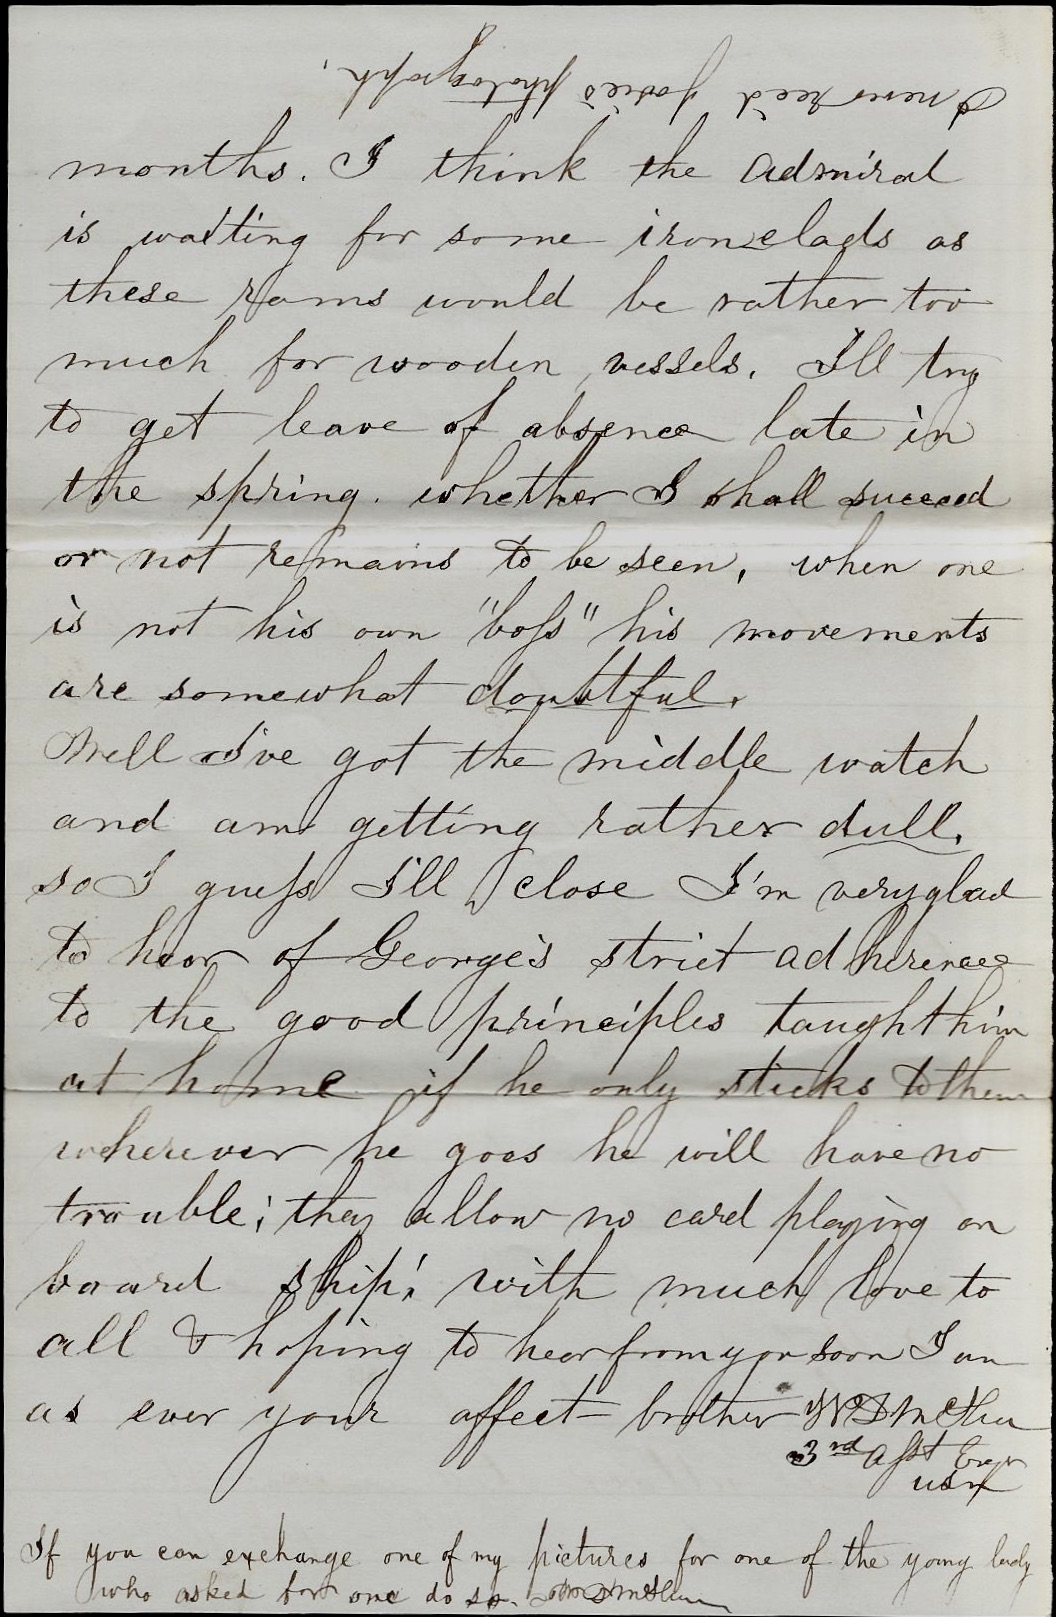 I never rec'd Josie's photograph.
months. I think the Admiral
is waiting for some ironclads as
these rams would be rather too
much for wooden vessels. I'll try
to get leave of absence late in
the spring. whether I shall succeed
or not remains to be seen, when one
is not his own "boss" his movements
are somewhat doubtful.
Well I've got the middle watch
and am getting rather dull.
so I guess I'll close I'm very glad
to hear of George's strict adherence
to the good principles taught him
at home if he only sticks to them
wherever he goes he will have no
trouble; they allow no card playing on
board ship! with much love to
all & hoping to hear from you soon I am
as ever your affect brother
3rd Asst Engr
USN
If you can exchange one of my pictures for one of the young lady
who asked for one do so.